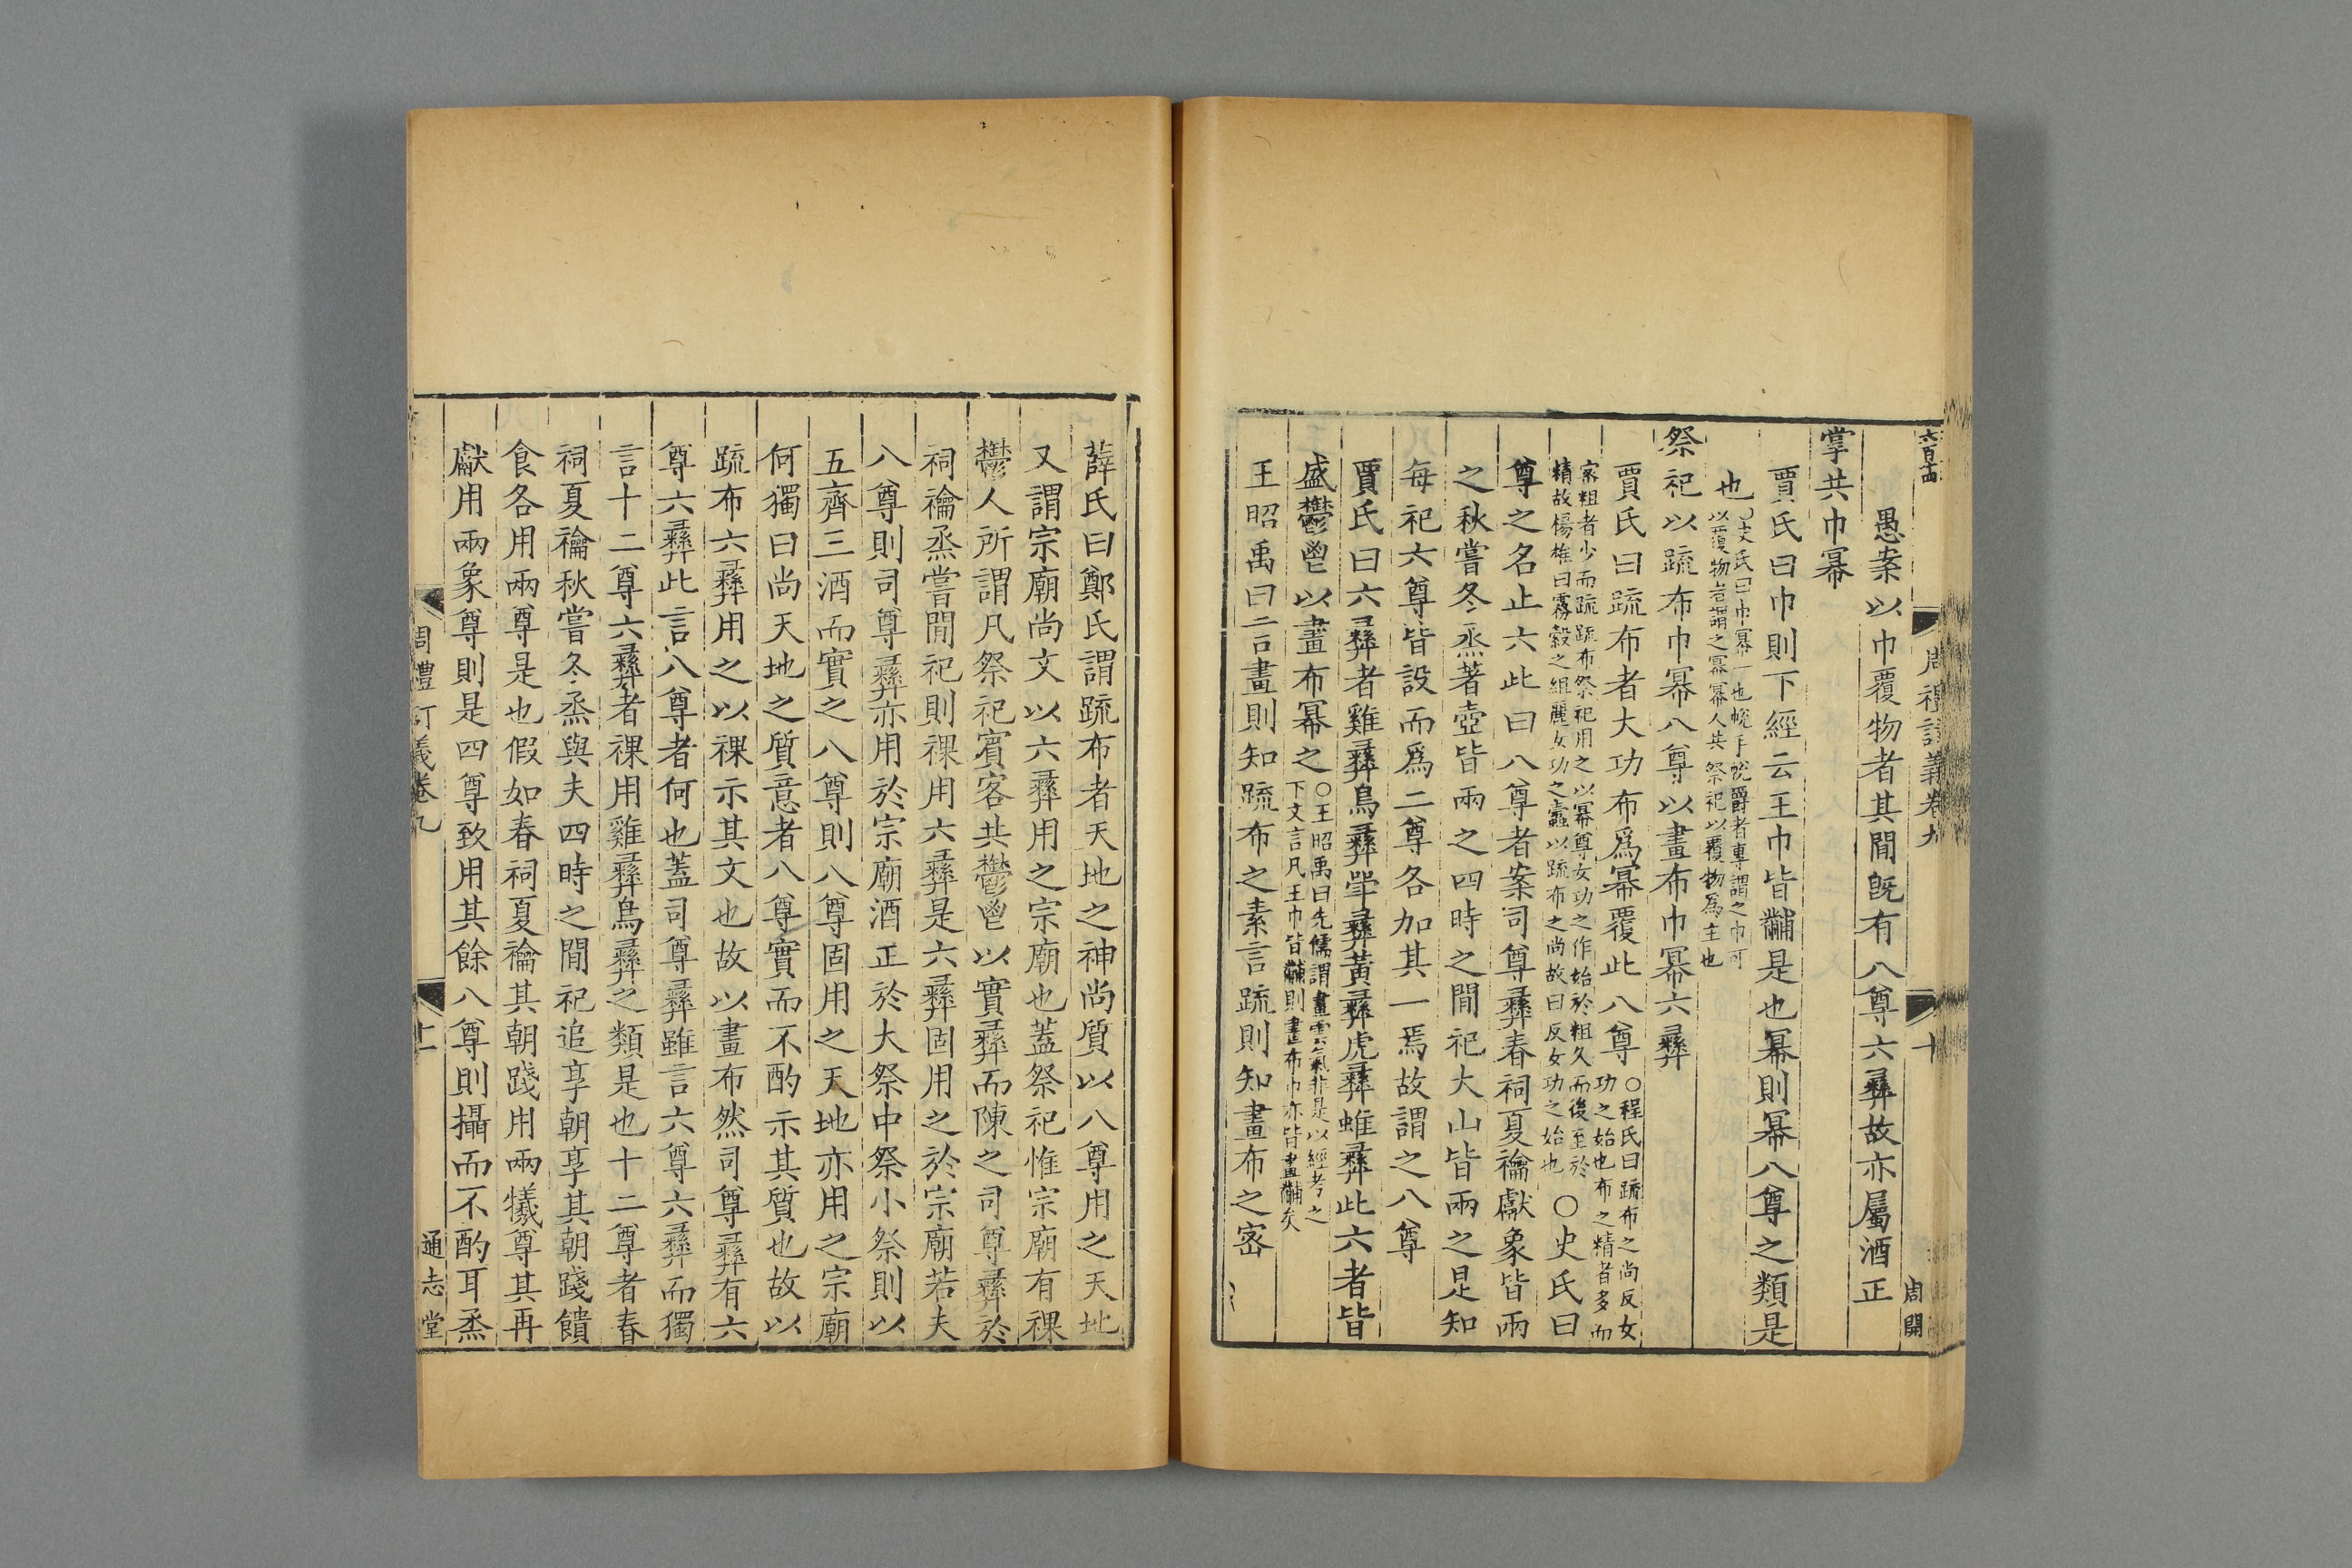 六百十四
周禮訂義卷九
十
周開
愚案以巾覆物者其間既有八尊六彝故亦屬酒正
掌共巾冪
賈氏曰巾則下經云王巾皆黼是也冪則冪八尊之類是
也
○史氏曰巾冪一也帨手帨爵者專謂之巾可
以覆物者謂之冪冪人共祭祀以覆物為主也
祭祀以疏布巾冪八尊以畫布巾冪六彝
賈氏曰疏布者大功布爲冪覆此八尊
○程氏曰疏布之尚反女
功之始也布之精者多而
家粗者少而疏疏布祭祀用之以冪尊女功之作始於粗久而後至於
精故楊雄曰霧縠之組麗女功之蠹以疏布之尚故曰反女功之始也
○史氏曰
尊之名止六此曰八尊者案司尊彝春祠夏禴獻象皆兩
之秋嘗冬烝著壺皆兩之四時之間祀大山皆兩之是知
每祀六尊皆設而爲二尊各加其一焉故謂之八尊
賈氏曰六彝者雞彝鳥彝斝彝黃彝虎彝蜼彝此六者皆
盛鬱鬯以畫布冪之
○王昭禹曰先儒謂畫雲氣非是以經考之
下文言凡王巾皆黼則畫布巾亦皆畫黼矣
王昭禹曰言畫則知疏布之素言疏則知畫布之密
薛氏曰鄭氏謂疏布者天地之神尚質以八尊用之天地
又謂宗廟尚文以六彝用之宗廟也蓋祭祀惟宗廟有祼
鬱人所謂凡祭祀賓客共鬱鬯以實彝而陳之司尊彝於
祠禴烝嘗間祀則祼用六彝是六彝固用之於宗廟若夫
八尊則司尊彝亦用於宗廟酒正於大祭中祭小祭則以
五齊三酒而實之八尊則八尊固用之天地亦用之宗廟
何獨曰尚天地之質意者八尊實而不酌示其質也故以
疏布六彝用之以祼示其文也故以畫布然司尊彝有六
尊六彝此言八尊者何也蓋司尊彝雖言六尊六彝而獨
言十二尊六彝者祼用雞彝鳥彝之類是也十二尊者春
祠夏禴秋嘗冬烝與夫四時之間祀追享朝享其朝踐饋
食各用兩尊是也假如春祠夏禴其朝踐用兩犧尊其再
獻用兩象尊則是四尊致用其餘八尊則攝而不酌耳烝
周禮訂義卷九
十一
通志堂